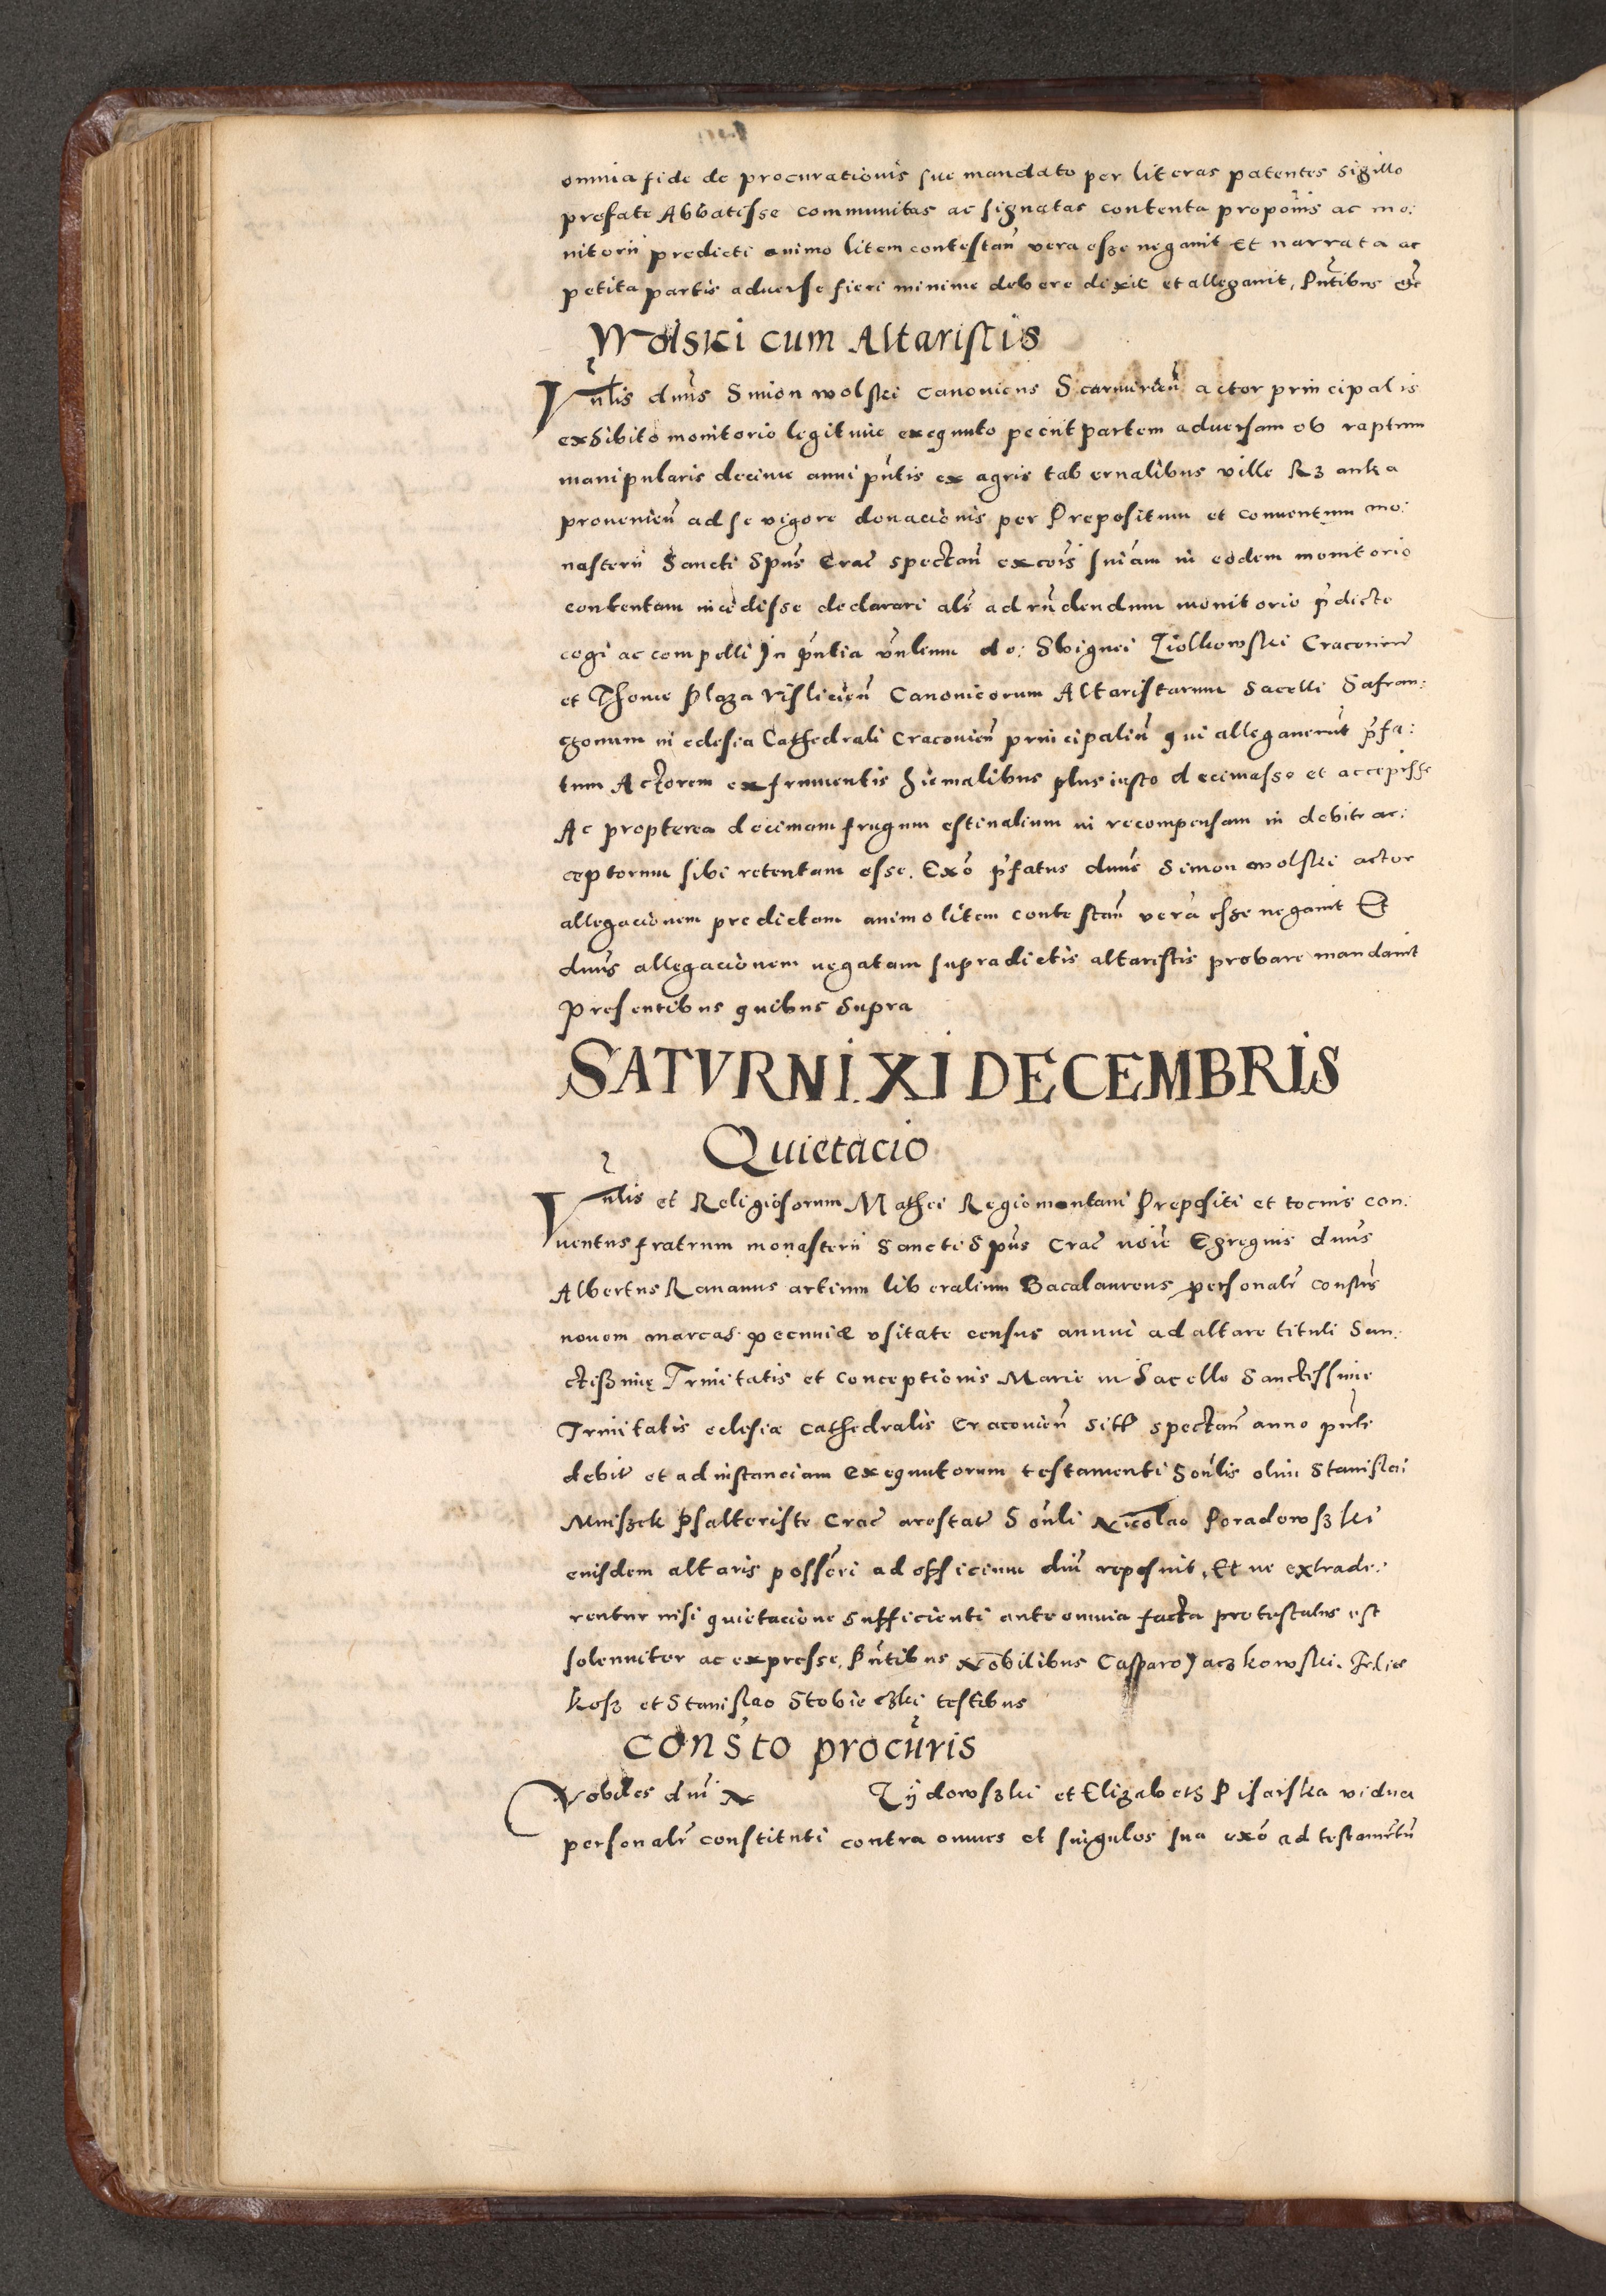 omnia fide de procurationis sue mandato per literas patentes sigillo
prefate Abbatisse communitas ac signatas contenta proponis ac mo:
nitorii predicti animo litem contestañ vera esse negauit Et narrata ac
petita partis aduerse fieri minime debere dixit et allegauit, Pñtibus
Wolski cum Altaristis
Vñlis dnũs Simon wolski Canonicus Scarmirień actor principalis
exhibito monitorio legitime exequuto peciit partem aduersam ob raptum
manipularis decime anni pñtis ex agris tabernalibus ville Rzanka
prouenieñ ad se vigore donacionis per Prepositum et conuentum mo:
nasterii Sancti Spũs Crač spectañ excõis sniam in eodem monitorio
contentam incidisse declarari alš ad rñdendum monitorio p̃dicto
cogi ac compelli In pñtia vñlium do: Sbignei Ziolkowski Cracouieñ
et Thome Plaza Vislicieñ Canonicorum Altaristarum Sacelli Safran:
czonum in eclesia Cathedrali Cracouieñ principaliũ qui allegauerũt p̃fa:
tum Actorem ex frumentis hiemalibus plus iusto decimasse et accepisse
Ac propterea decimam frugum estiualium in recompensam indebite ac:
ceptorum sibi retentam esse. Exõ p̃fatus dnũs Simon wolski actor
allegacionem predictam animo litem contestañ vera esse negauit Et
dnũs allegacionem negatam supradictis altaristis probare mandauit
Presentibus quibus Supra
SATVRNI XI DECEMBRIS
Quietacio
Vñlis et Religiosorum Mathei Regiomontani Prepositi et tocius con:
uentus fratrum monasterii Sancti Spũs Crač noĩe Egregius dnũs
Albertus Rananus artium liberalium Bacalaureus personalř constũs
nouem marcas pecuniæ vsitate census annui ad altare tituli San:
ctiszimę Trinitatis et Conceptionis Marie in Sacello Sanctissime
Trinitatis eclesiæ Cathedralis Cracouieñ sitũ spectañ anno pñti
debit̃ et ad instanciam exequutorum testamenti Honlis olim Stanislai
Mniszek Psalteriste Crač arestat̃ Honli Nicolao Poradowszki
eiusdem altaris possõri ad officium dnĩ reposuit, Et ne extrade:
rentur nisi quietacione sufficienti ante omnia facta protestatus est
solenniter ac expresse, Pñtibus Nobilibus Casparo Jaczkowski. Felice
Kosz et Stanislao Stobieczki testibus
Consto procũris
Nobiles dnĩ N Zydowszki et Elizabeth Pisarska vidua
personalř constituti contra omnes et singulos sua exõ ad testamẽtũ